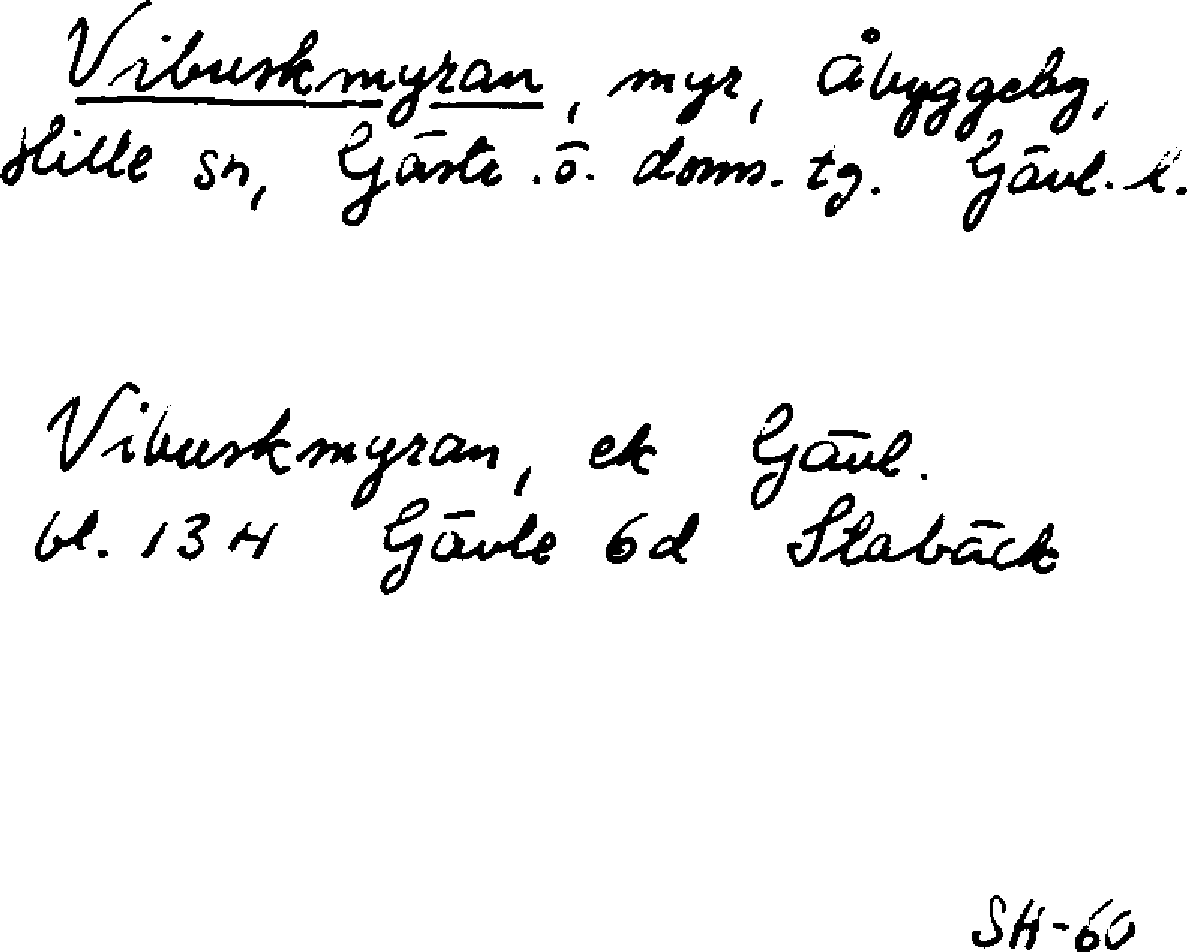 Vibuskmyran, myr, Åbyggeby,
Hille sn, Gästr. ö. doms. tg. Gävl. l.
Vibuskmyran, ek Gävl.
bl. 13 H Gävle 6d Stabäck
SH-60